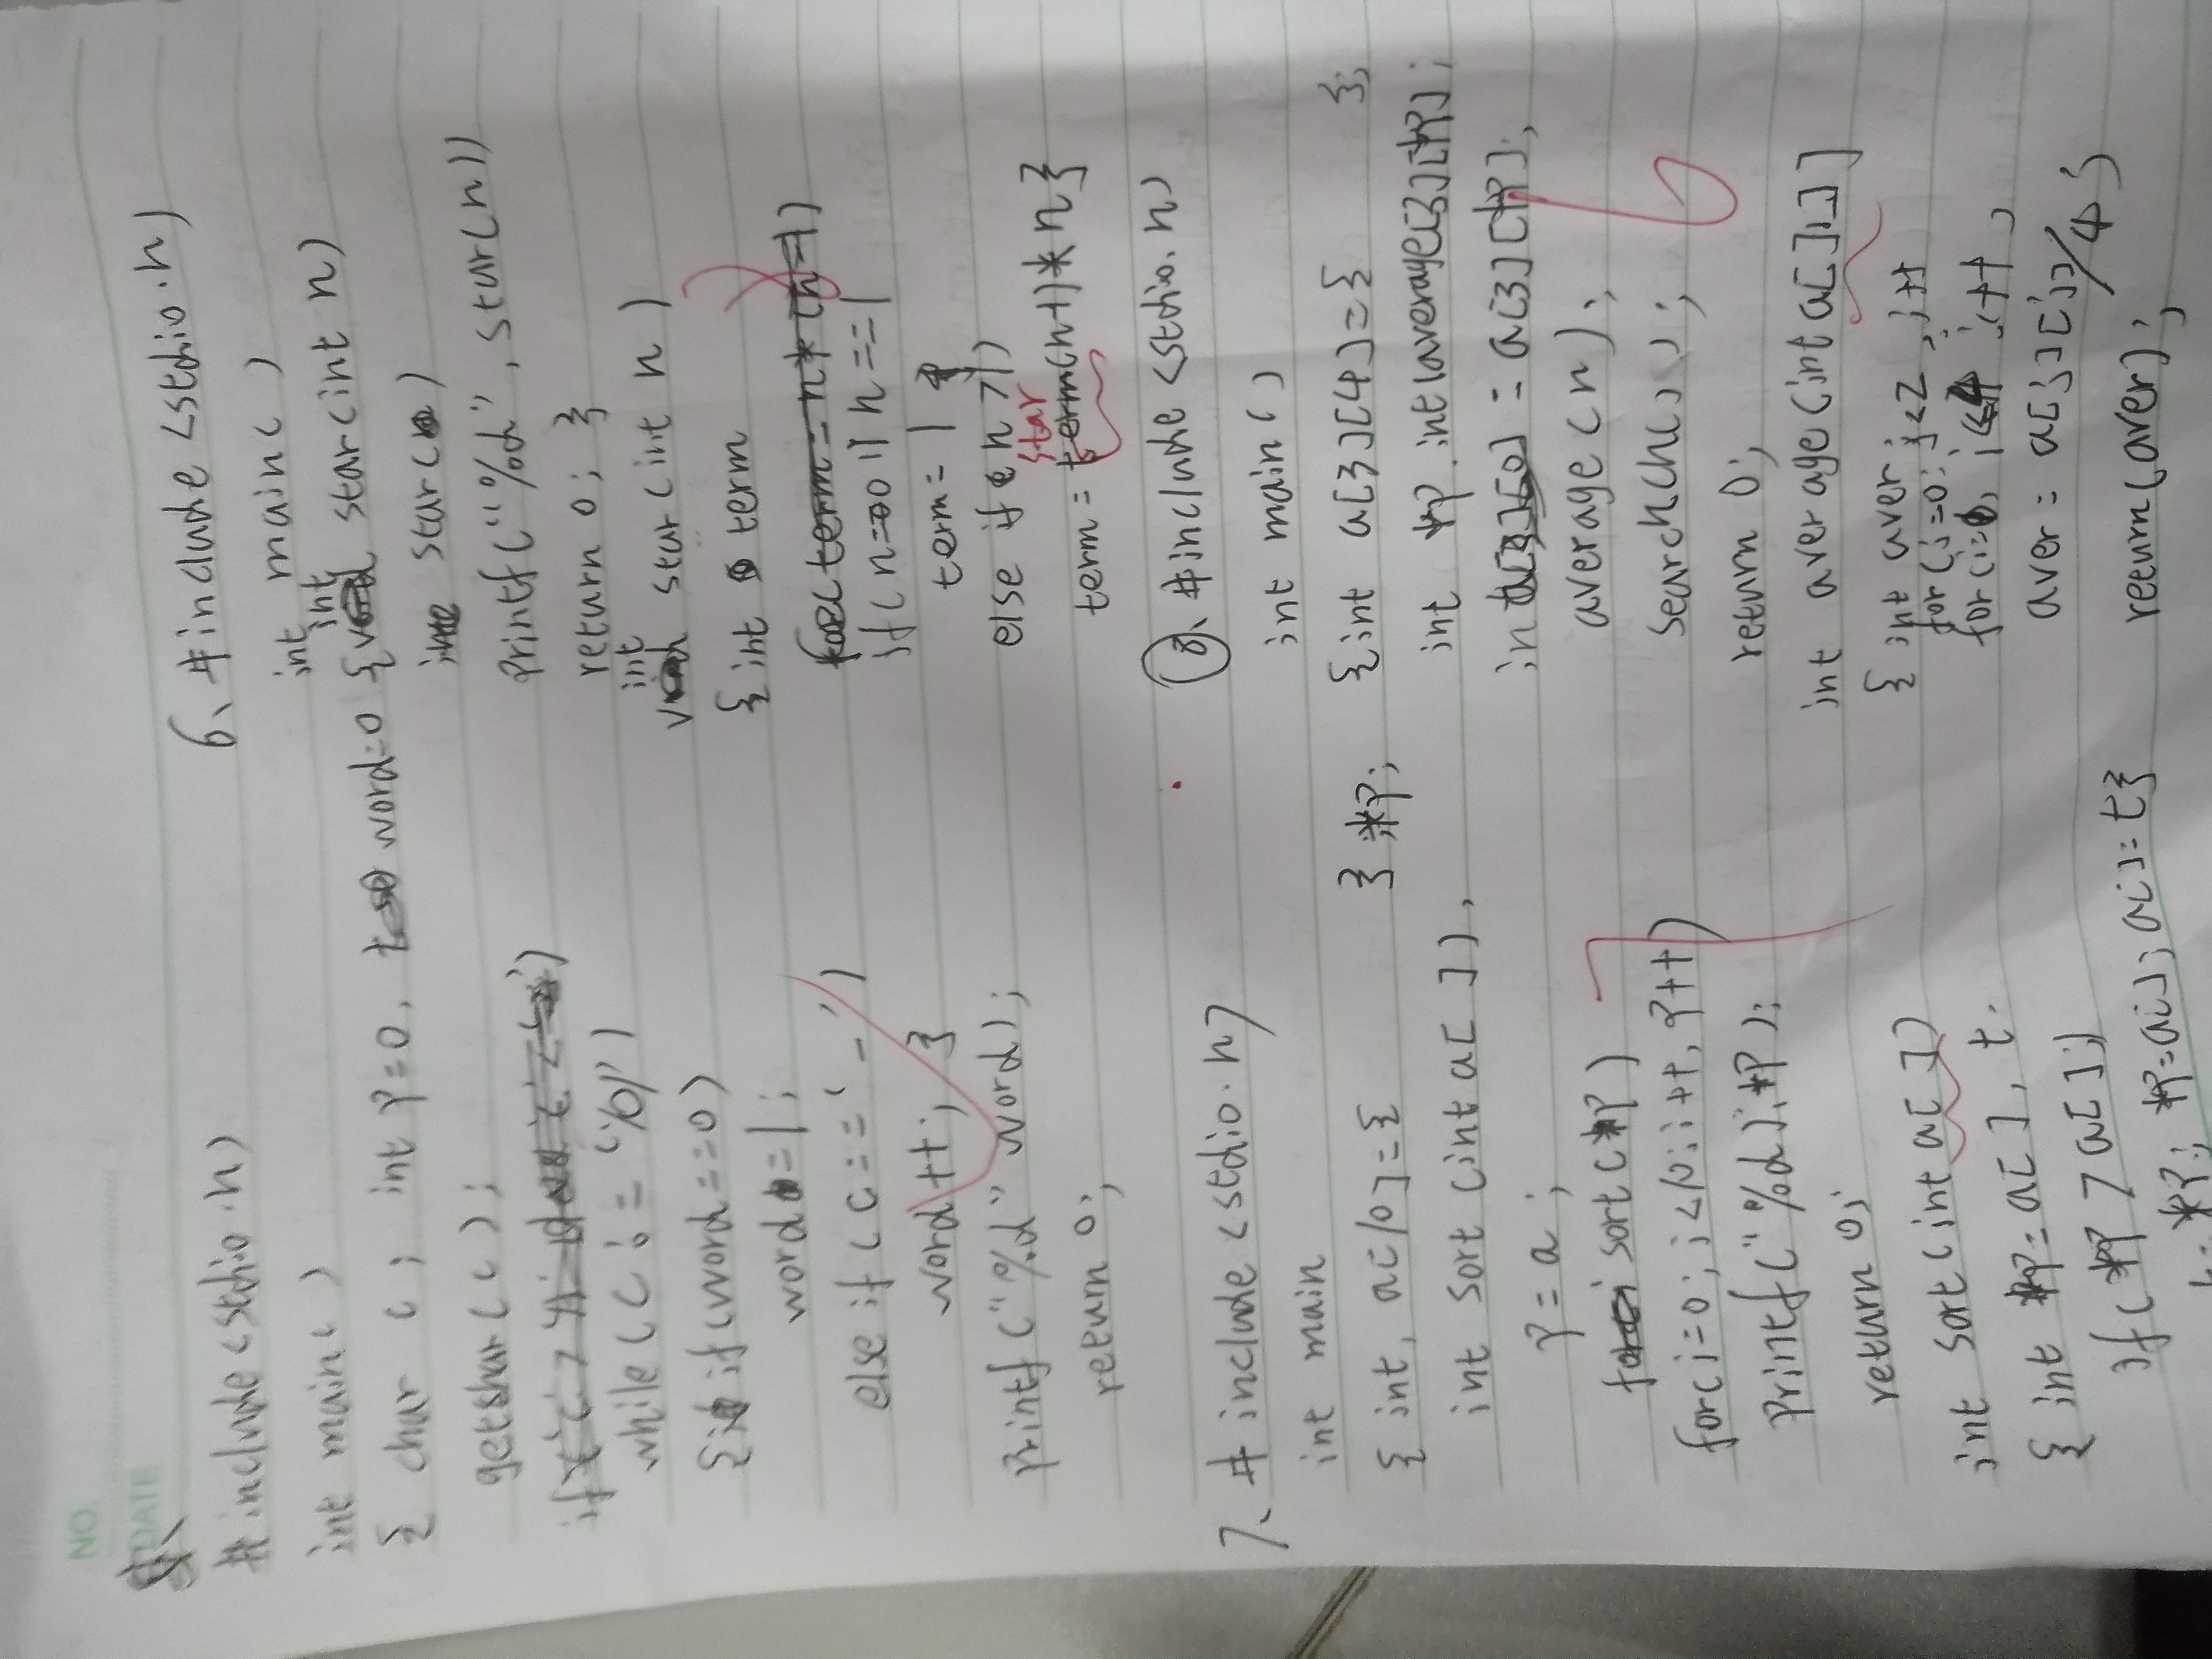 NO.
DATE
#include <stdio.h)
int main()
{ char c; int p=0, word=0
getchar(c);
while(c != '\0')
{ if(word==0)
word=1;
else if(c==' - ')
word++; }
printf("%d" word);
return 0;
7、#include <stdio.h>
int main
{ int, a[10]={ } *p;
int sort(int a[ ]),
p=a;
sort(*p)
for(i=0;i<10;i++,p++)
printf("%d),*p);
return 0;
int sort(int a[ ])
{ int *p=a[ ], t.
if(*p>a[i]
*p; *p=a[i]; a[i]=t}
6、#include <stdio.h)
int main()
{ int star(int n)
star( )
printf("%d", star(n))
return 0; }
int star(int n)
{ int term
if(n=0||n==1
term=1
else if(n>1)
star
term=term(n+1)*n}
8、#include <stdio.h)
int main()
{int a[3][4]={ };
int *p, int(average[3][*p];
int = a[3][*p];
average(n);
search(n);
return 0;
int average(int a[ ][ ]
{ int aver;
for(j=0;j<2,j++
for(i=0, i<4, i++)
aver = a[j][i]/4}
return(aver);